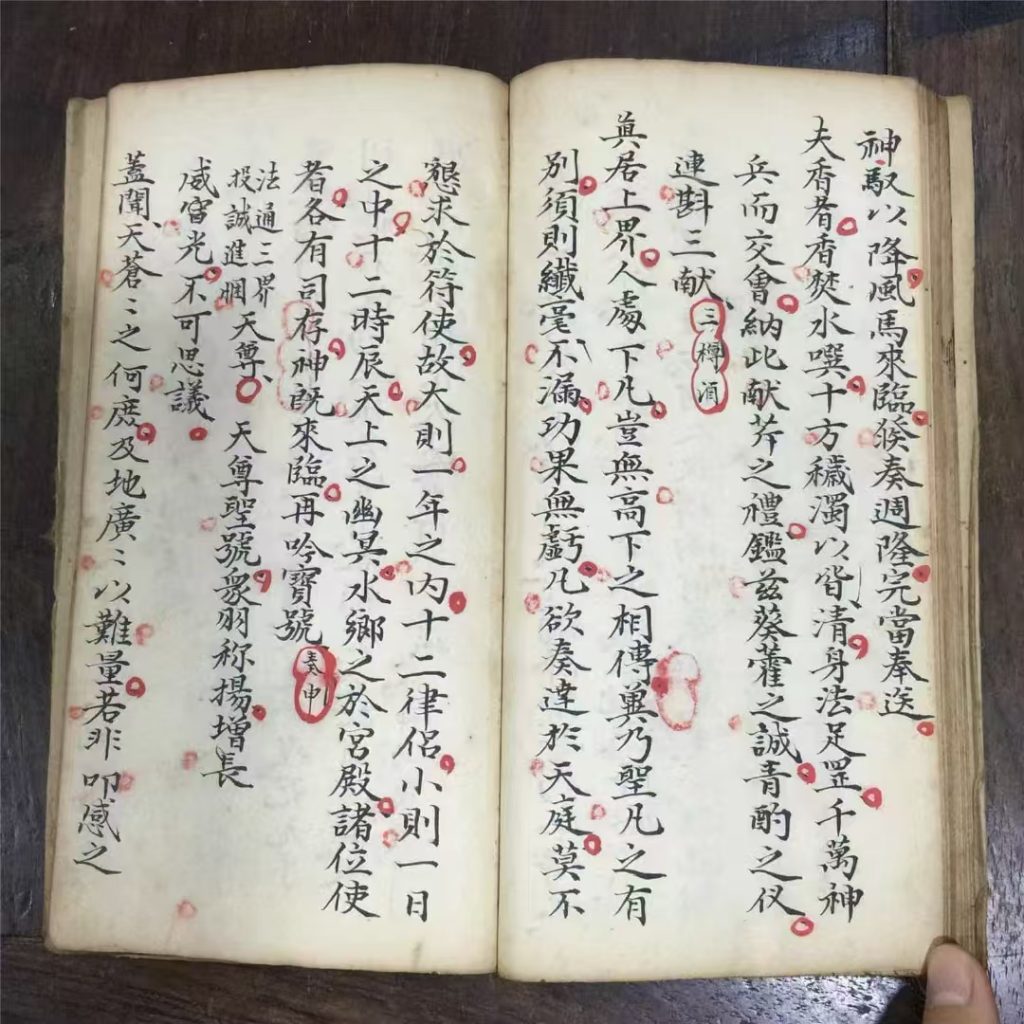 神馭以降風馬來臨發奏週隆完當奉送
夫香者香焚水噀十方穢濁以皆清身法足罡千萬神
兵而交會納此献芹之禮鑑兹葵藿之誠青酌之仪
連斟三献三樽酒
眞居上界人處下凡豈無高下之相傳異乃聖凡之有
別須則纖毫不漏功果無虧凡欲奏達於天庭莫不
懇求於符使故大則一年之内十二律侣小則一日
之中十二時辰天上之幽冥水鄉之於宮殿諸位使
者各有司存神既來臨再吟寶號奏申
法通三界
投誠進悃
天尊天尊聖號衆羽称揚增長
威富光不可思議
蓋聞天蒼〻之何庶及地廣〻以難量若非叩感之